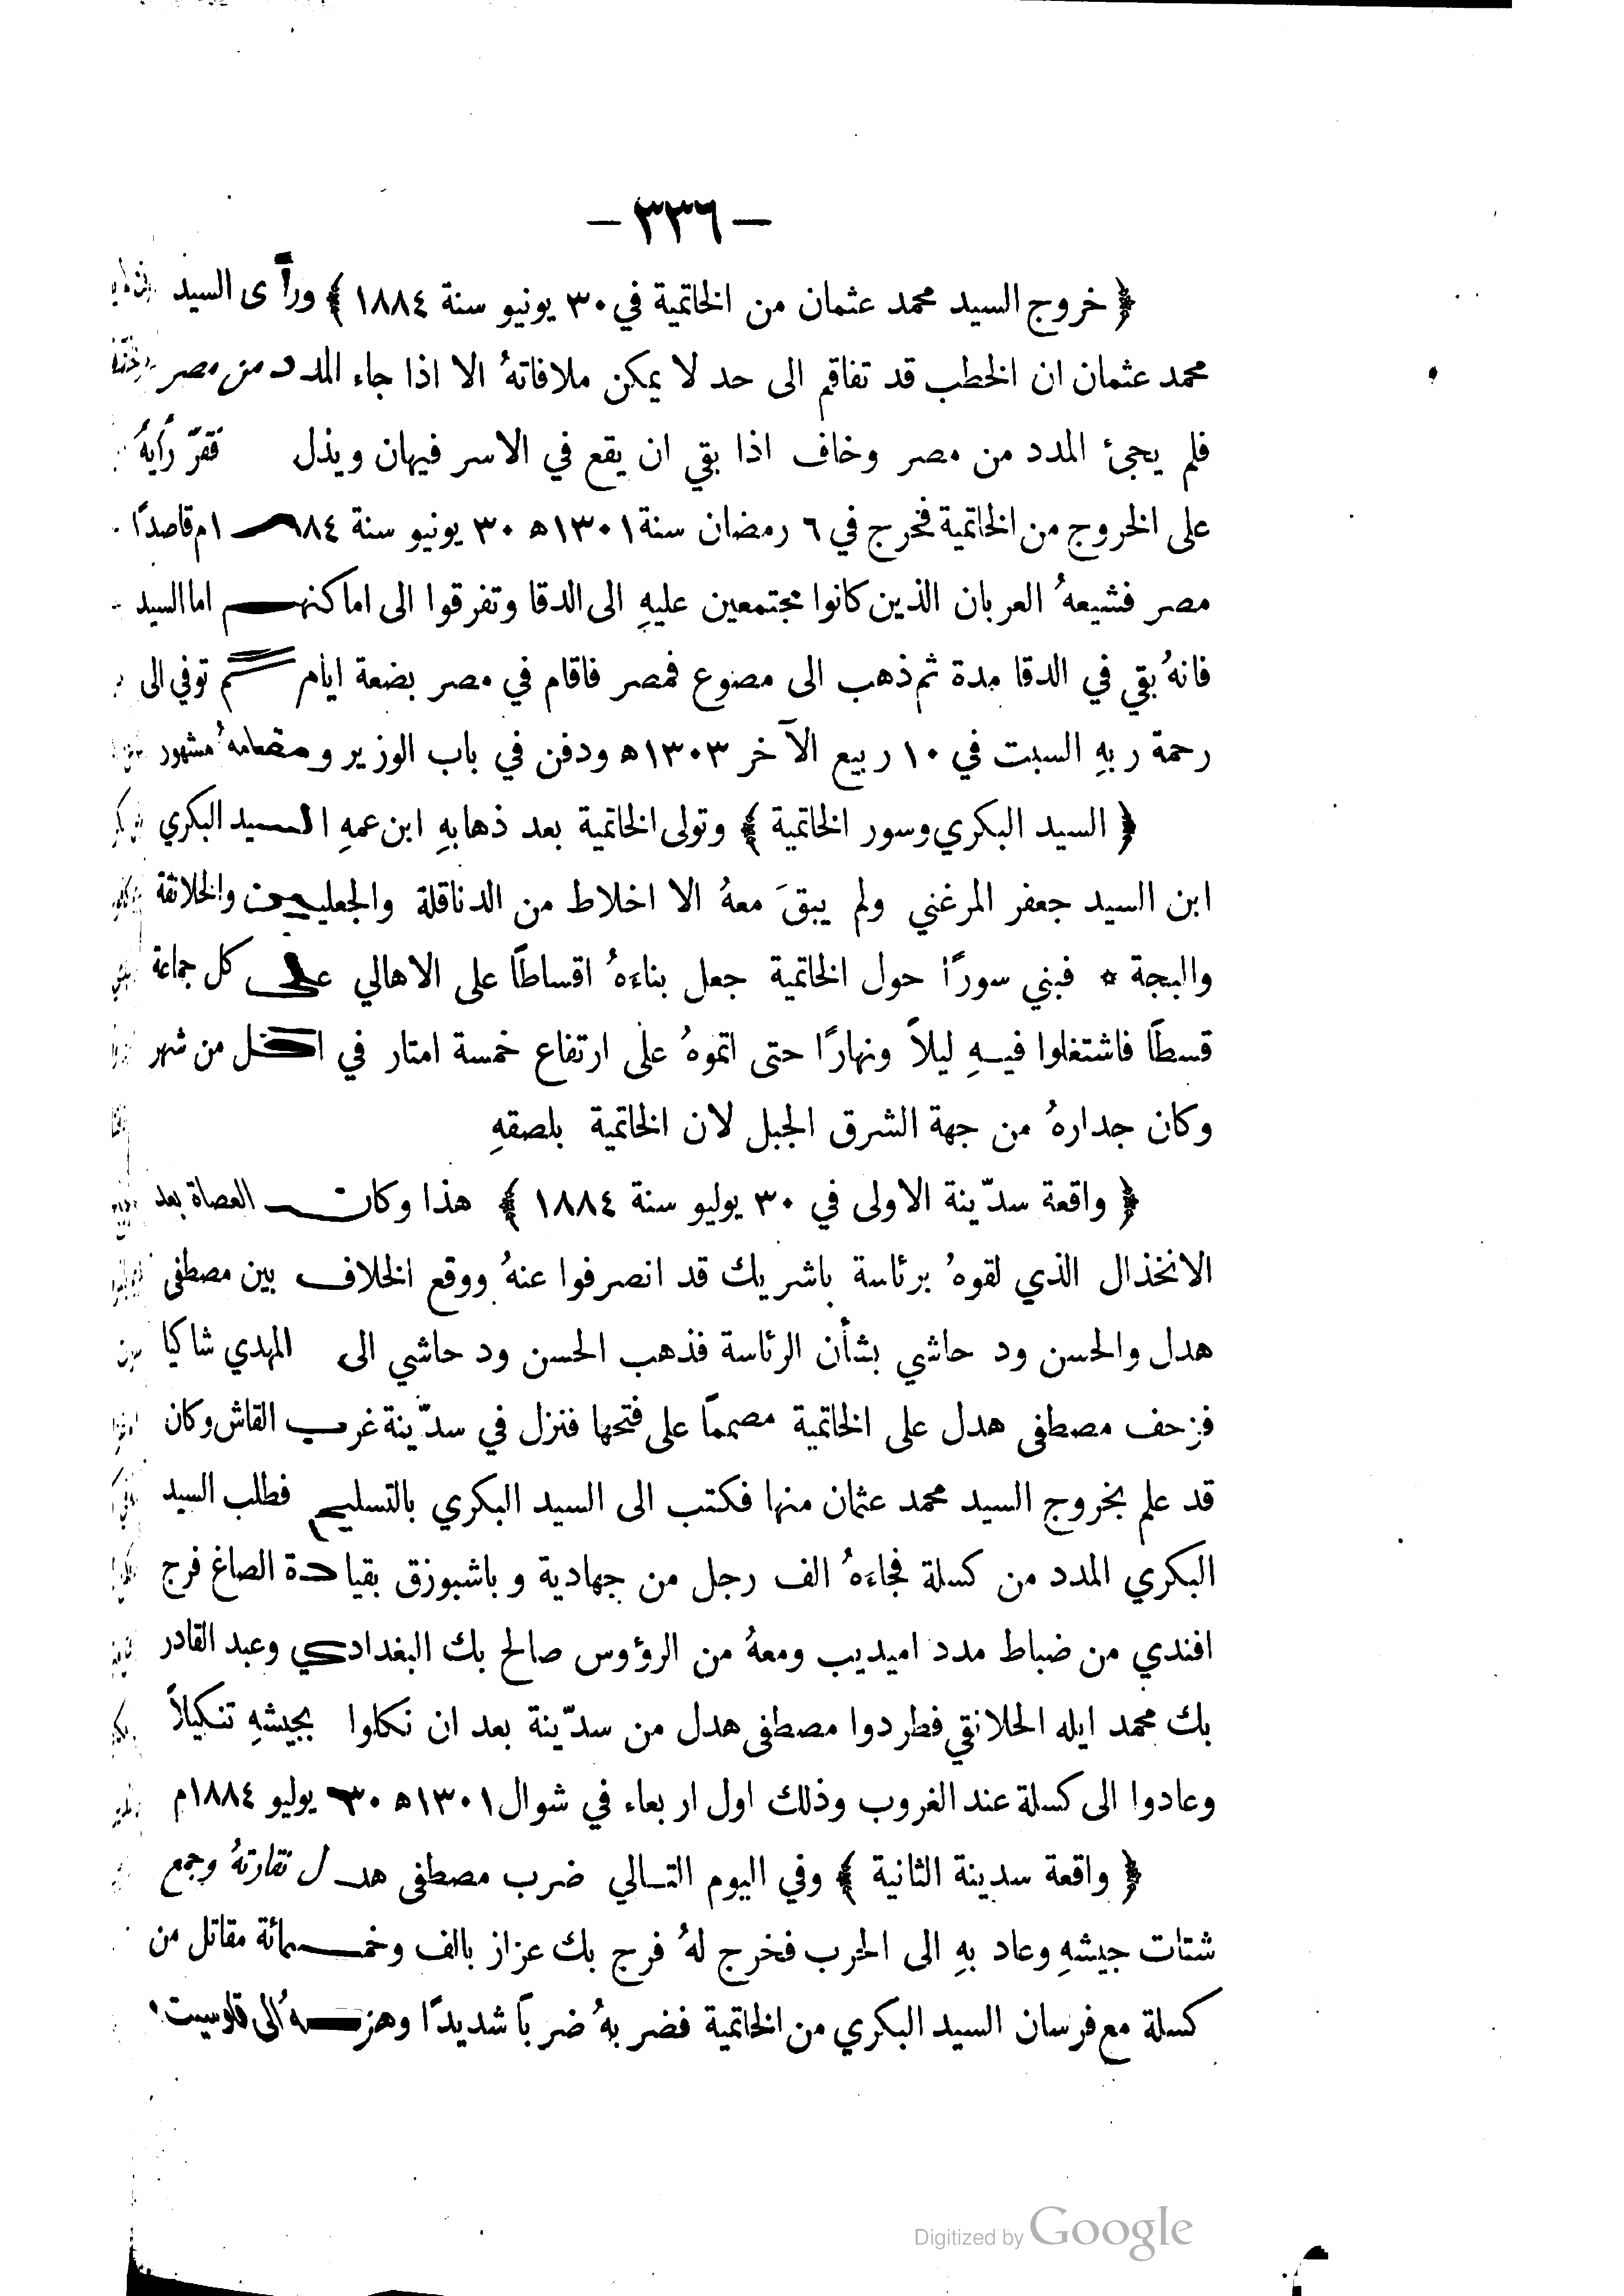 — ٣٣٦ —
﴿ خروج السيد محمد عثمان من الخاتمية في ٣٠ يونيو سنة ١٨٨٤ ﴾ ورأى السيد
محمد عثمان ان الخطب قد تفاقم الى حد لا يمكن ملافاتهُ الا اذا جاء المدد من مصر
فلم يجئ المدد من مصر وخاف اذا بقي ان يقع في الاسر فيهان ويذل فقرّ رأيهُ
على الخروج من الخاتمية فخرج في ٦ رمضان سنة ١٣٠١ه ٣٠ يونيو سنة ١٨٨٤م قاصدًا
مصر فشيعهُ العربان الذين كانوا مجتمعين عليهِ الى الدقا وتفرقوا الى اماكنهم اما السيد
فانهُ بقي في الدقا مدة ثم ذهب الى مصوع فمصر فاقام في مصر بضعة ايام ثم توفي الى
رحمة ربهِ السبت في ١٠ ربيع الآخر ١٣٠٣ه ودفن في باب الوزير ومقامهُ مشهور
﴿ السيد البكري وسور الخاتمية ﴾ وتولى الخاتمية بعد ذهابهِ ابن عمهِ السيد البكري
ابن السيد جعفر المرغني ولم يبقَ معهُ الا اخلاط من الدناقلة والجعليين والحلانقة
والبجة * فبني سورًا حول الخاتمية جعل بناءهُ اقساطًا على الاهالي على كل جماعة
قسطًا فاشتغلوا فيهِ ليلاً ونهارًا حتى اتموهُ على ارتفاع خمسة امتار في اقل من شهر
وكان جدارهُ من جهة الشرق الجبل لان الخاتمية بلصقهِ
﴿ واقعة سدّينة الاولى في ٣٠ يوليو سنة ١٨٨٤ ﴾ هذا وكان العصاة بعد
الانخذال الذي لقوهُ برئاسة باشريك قد انصرفوا عنهُ ووقع الخلاف بين مصطفى
هدل والحسن ود حاشي بشأن الرئاسة فذهب الحسن ود حاشي الى المهدي شاكيا
فزحف مصطفى هدل على الخاتمية مصممًا على فتحها فنزل في سدّينة غرب القاش وكان
قد علم بخروج السيد محمد عثمان منها فكتب الى السيد البكري بالتسليم فطلب السيد
البكري المدد من كسلة فجاءهُ الف رجل من جهادية وباشبوزق بقيادة الصاغ فرج
افندي من ضباط مدد اميديب ومعهُ من الرؤوس صالح بك البغدادي وعبد القادر
بك محمد ايله الحلانقي فطردوا مصطفى هدل من سدّينة بعد ان نكلوا بجيشهِ تنكيلاً
وعادوا الى كسلة عند الغروب وذلك اول اربعاء في شوال ١٣٠١ه ٣٠ يوليو ١٨٨٤م
﴿ واقعة سدينة الثانية ﴾ وفي اليوم التالي ضرب مصطفى هدل نقارتهُ وجمع
شتات جيشهِ وعاد بهِ الى الحرب فخرج لهُ فرج بك عزاز بالف وخمسمائة مقاتل من
كسلة مع فرسان السيد البكري من الخاتمية فضربهُ ضربًا شديدًا وهزمهُ الى قلوسيت
Digitized by Google